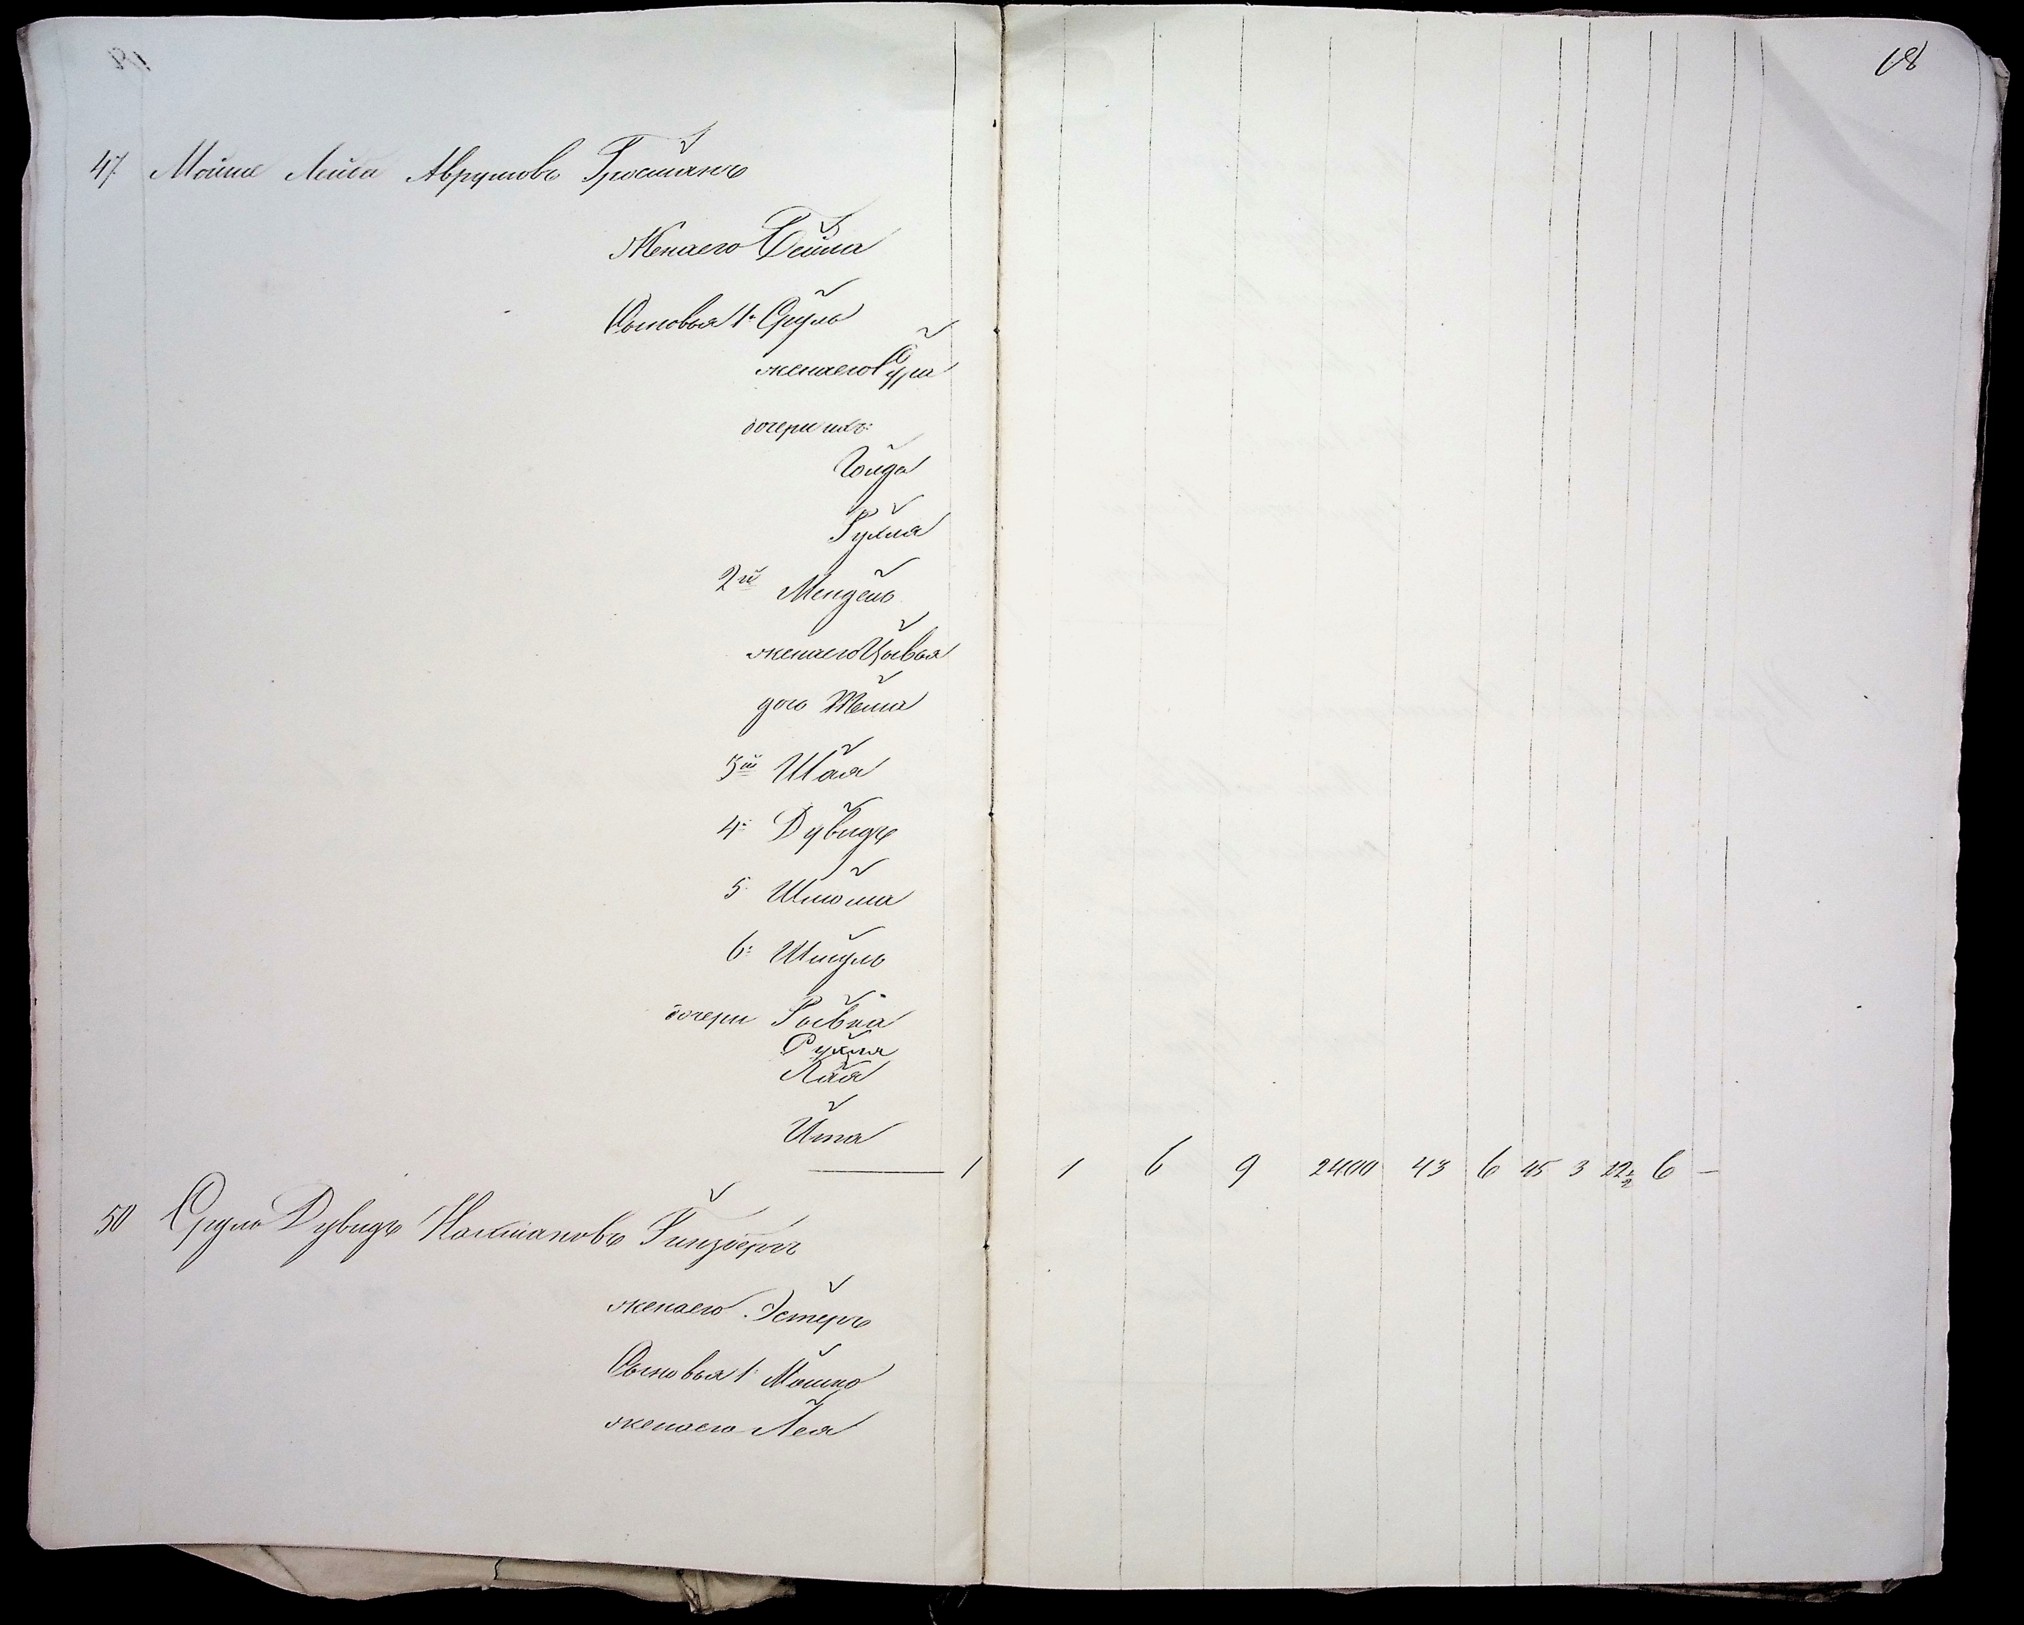 18
47 Мошко Лейба Аврумовъ Гросманъ
Жена его Бейла
Сыновья 1й Сруль
жена его Сура
дочери ихъ:
Гольда
Рухля
2й Мендель
жена его Цывья
дочь
3й Шая
4й Дувидъ
5 Шлома
6й Шмуль
дочери Рывка
Рухля
Лая
Ита
1 1 6 9 2400 43 6 45 3 22½ 6 —
50 Сруль Дувидъ Нахмановъ Гинзбергъ
жена его Эстеръ
Сыновья 1й Мошко
жена его Лея